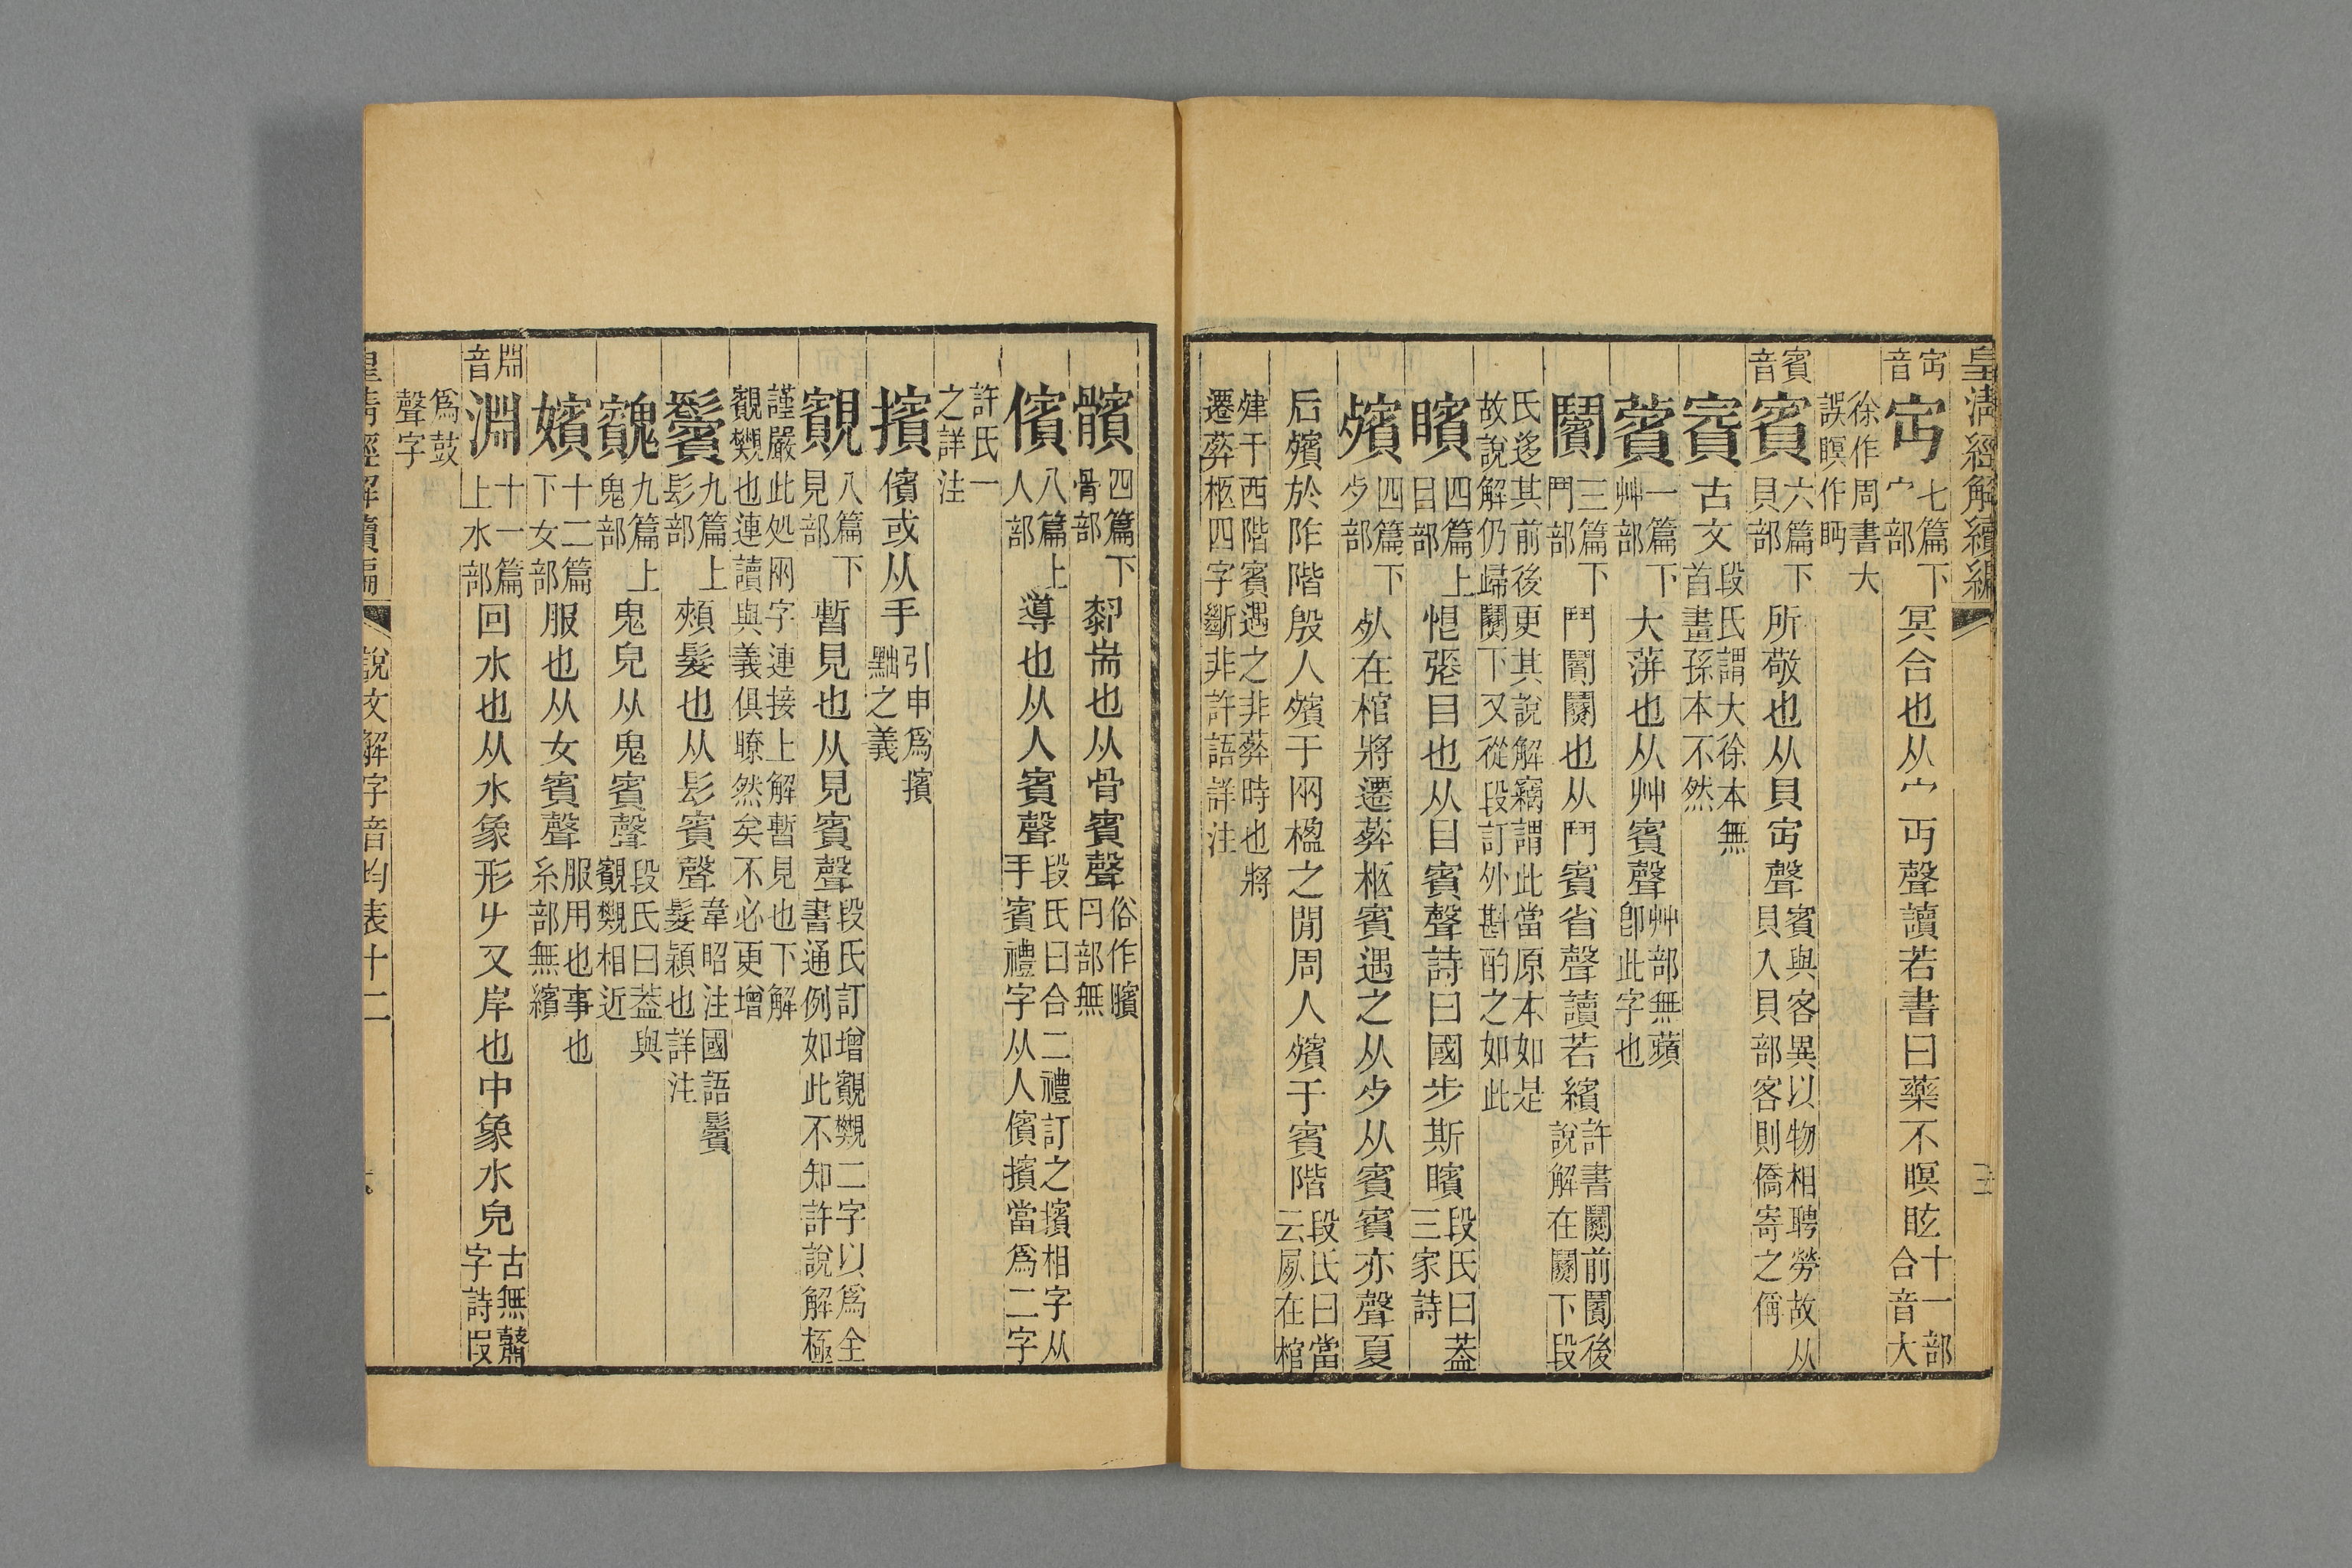 皇清經解續編
㝉音 㝉 七篇下宀部 冥合也从宀丏聲讀若書曰藥不瞑眩 十一部合音大
徐作周書大誤瞑作眄
賓音 賓 六篇下貝部 所敬也从貝㝉聲 賓與客異以物相聘勞故从貝入貝部客則僑寄之偁
𡪛 古文 段氏謂大徐本無首畫孫本不然
薲 一篇下艸部 大蓱也从艸賓聲 艸部無蘋卽此字也
鬭 三篇下鬥部 鬥鬩鬭也从鬥賓省聲讀若繽 許書鬭前鬩後說解在鬭下段
氏迻其前後更其說解竊謂此當原本如是故說解仍歸鬭下又從段訂外斟酌之如此
矉 四篇上目部 恨張目也从目賓聲詩曰國步斯矉 段氏曰葢三家詩
殯 四篇下歺部 𣦸在棺將遷葬柩賓遇之从歺从賓賓亦聲夏
后殯於阼階殷人殯于兩楹之閒周人殯于賓階 段氏曰當云屍在棺
肂于西階賓遇之非葬時也將遷葬柩四字斷非許語詳注
髕 四篇下骨部 厀耑也从骨賓聲 俗作臏冃部無
儐 八篇上人部 導也从人賓聲 段氏曰合二禮訂之擯相字从手賓禮字从人儐擯當爲二字
許氏一之詳注
擯 儐或从手 引申爲擯黜之義
覾 八篇下見部 暫見也从見賓聲 段氏訂增覾覹二字以爲全書通例如此不知許說解極
謹嚴此処兩字連接上解暫見也下解覾覹也連讀與義俱瞭然矣不必更增
鬢 九篇上髟部 頰髮也从髟賓聲 韋昭注國語鬢髮穎也詳注
䰮 九篇上鬼部 鬼皃从鬼賓聲 段氏曰葢與覾覹相近
嬪 十二篇下女部 服也从女賓聲 服用也事也糸部無繽
淵音 淵 十一篇上水部 回水也从水象形ㄐ又岸也中象水皃 古無鼘字詩叚
爲鼓聲字
皇清經解續編 說文解字音均表十二